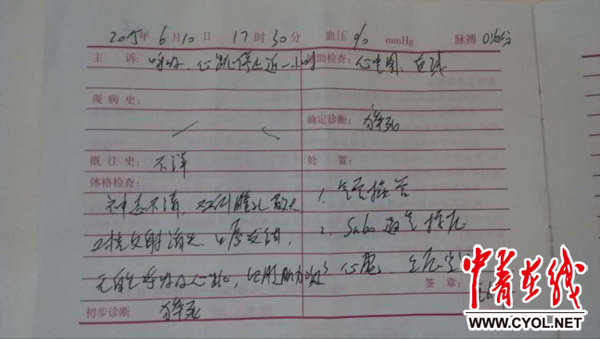 2015年 6月 10日 17时 30分 血压 0/0 mmHg 脉搏 0次/分
主诉: 呼吸、心跳停止近一小时 辅助检查: 心电图:直线
现病史:
确定诊断: 猝死
既往史: 不详 处置:
体格检查:
神志不清,双侧瞳孔散大 1. 气管插管
对光反射消失,口唇发绀, 2.
无自主呼吸及心跳,四肢肌力 3 心电
签章:
初步诊断 猝死
中青在线
www.CYOL.NET